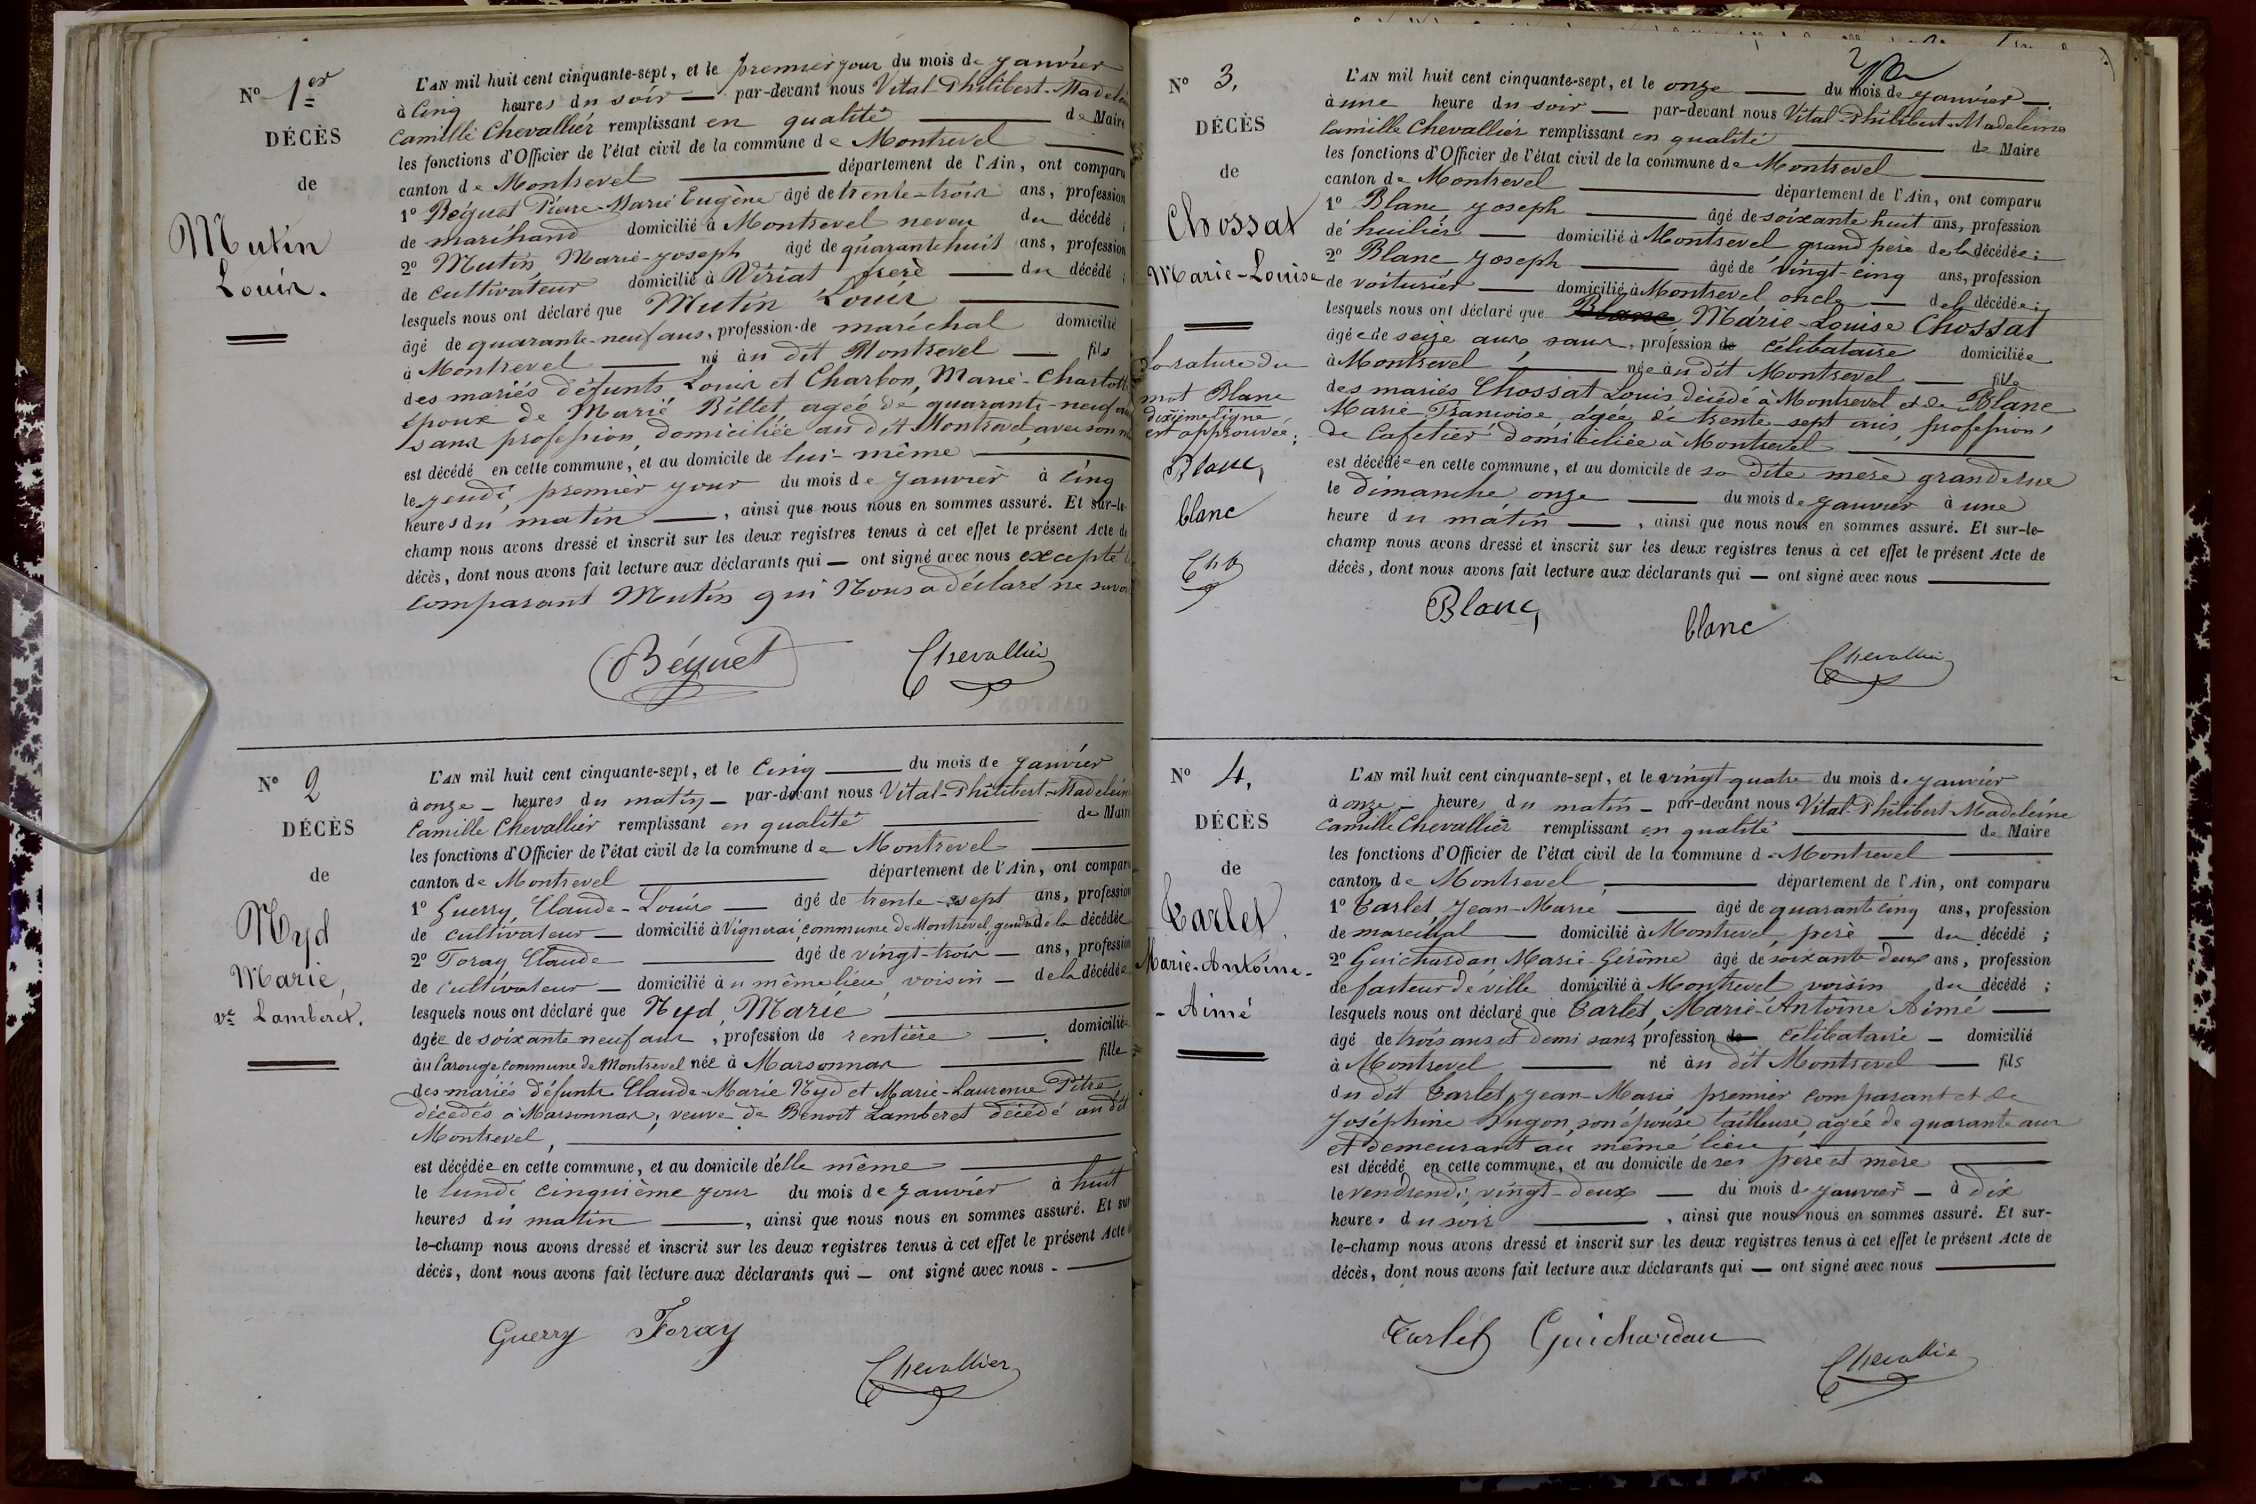 N° 1er
DÉCÈS
de
Mutin
Louis.
L'AN mil huit cent cinquante-sept, et le premier jour du mois de Janvier
à Cinq heures du soir — par-devant nous Vital-Philibert-Madelei
Camille Chevallier remplissant en qualité — de Maire
les fonctions d'Officier de l'état civil de la commune de Montrevel
canton de Montrevel — département de l'Ain, ont comparu
1° Béguet Pierre-Marie Eugène âgé de trente-trois ans, profession
de marchand domicilié à Montrevel neveu du décédé ;
2° Mutin Marie-Joseph âgé de quarante huit ans, profession
de cultivateur domicilié à Viriat frere — du décédé ;
lesquels nous ont déclaré que Mutin Louis
âgé de quarante-neuf ans, profession de maréchal domicilié
à Montrevel — né au dit Montrevel — fils
des mariés défunts Louis et Charbon, Marie-Charlott
époux de Marie Billet agée de quarante-neuf an
sans profession, domiciliée au dit Montrevel, avec son m
est décédé en cette commune, et au domicile de lui-même
le jeudi, premier jour du mois de Janvier à cinq
heures du matin —, ainsi que nous nous en sommes assuré. Et sur-le-
champ nous avons dressé et inscrit sur les deux registres tenus à cet effet le présent Acte de
décès, dont nous avons fait lecture aux déclarants qui — ont signé avec nous excepté l
comparant Mutin qui Nous a déclaré ne savo
Béguet Chevallier
N° 2
DÉCÈS
de
Nyd
Marie,
ve Lamberet.
L'AN mil huit cent cinquante-sept, et le Cinq — du mois de Janvier
à onze — heures du matin — par-devant nous Vital-Philibert-Madelein
Camille Chevallier remplissant en qualité — de Maire
les fonctions d'Officier de l'état civil de la commune de Montrevel
canton de Montrevel — département de l'Ain, ont comparu
1° Guerry, Claude-Louis — âgé de trente-sept ans, profession
de cultivateur — domicilié à Vignerai commune de Montrevel gendre de la décédée
2° Foray Claude — âgé de vingt-trois — ans, profession
de cultivateur — domicilié au même lieu, voisin — de la décédée
lesquels nous ont déclaré que Nyd, Marie
agée de soixante neuf ans, profession de rentière — domiciliée
au Carouge commune de Montrevel née à Marsonnas — fille
des mariés défunts Claude-Marie Nyd et Marie-Laurence Pître
décédés à Marsonnas, veuve de Benoit Lamberet décédé au dit
Montrevel,
est décédée en cette commune, et au domicile d'elle même
le lundi cinquième jour du mois de Janvier à huit
heures du matin —, ainsi que nous nous en sommes assuré. Et sur
le-champ nous avons dressé et inscrit sur les deux registres tenus à cet effet le présent Acte
décès, dont nous avons fait lecture aux déclarants qui — ont signé avec nous -
Guerry Foray
Chevallier
N° 3.
DÉCÈS
de
Chossat
Marie-Louise
La rature du
mot Blanc
dixième ligne
est approuvée;
Blanc,
blanc
Ch
L'AN mil huit cent cinquante-sept, et le onze — du mois de Janvier —
à une heure du soir — par-devant nous Vital-Philibert-Madeleine
Camille Chevallier remplissant en qualité — de Maire
les fonctions d'Officier de l'état civil de la commune de Montrevel
canton de Montrevel — département de l'Ain, ont comparu
1° Blanc Joseph — âgé de soixante huit ans, profession
de huilier — domicilié à Montrevel grand père de la décédée ;
2° Blanc Joseph — âgé de vingt-cinq ans, profession
de voiturier — domicilié à Montrevel oncle — de la décédée ;
lesquels nous ont déclaré que Blanc, Marie-Louise Chossat
âgée de seize ans, sans, profession de célibataire domiciliée
à Montrevel — née au dit Montrevel — fille
des mariés Chossat Louis décédé à Montrevel et de Blanc
Marie Françoise, âgée de trente-sept ans, profession
de Cafetier domiciliée à Montrevel
est décédée en cette commune, et au domicile de sa dite mère grande rue
le dimanche onze — du mois de Janvier à une
heure du matin —, ainsi que nous nous en sommes assuré. Et sur-le-
champ nous avons dressé et inscrit sur les deux registres tenus à cet effet le présent Acte de
décès, dont nous avons fait lecture aux déclarants qui — ont signé avec nous
Blanc, blanc
Chevallier
N° 4.
DÉCÈS
de
Carlet
Marie-Antoine-
- Aimé
L'AN mil huit cent cinquante-sept, et le vingt quatre du mois de Janvier
à onze — heures du matin — par-devant nous Vital-Philibert Madeleine
Camille Chevallier remplissant en qualité — de Maire
les fonctions d'Officier de l'état civil de la commune de Montrevel
canton de Montrevel, — département de l'Ain, ont comparu
1° Carlet, Jean-Marie — âgé de quarante cinq ans, profession
de marechal — domicilié à Montrevel, père — du décédé ;
2° Guichardan Marie-Gérôme âgé de soixante deux ans, profession
de facteur de ville domicilié à Montrevel voisin du décédé ;
lesquels nous ont déclaré que Carlet, Marie-Antoine Aimé
âgé de trois ans et demi sans profession de célibataire — domicilié
à Montrevel — né au dit Montrevel — fils
du dit Carlet, Jean-Marie premier comparant et de
Joséphine Dugon, son épouse tailleuse, agée de quarante ans
et demeurant au même lieu
est décédé en cette commune, et au domicile de ses père et mère
le vendredi, vingt-deux — du mois de Janvier — à dix
heures du soir —, ainsi que nous nous en sommes assuré. Et sur-
le-champ nous avons dressé et inscrit sur les deux registres tenus à cet effet le présent Acte de
décès, dont nous avons fait lecture aux déclarants qui — ont signé avec nous
Carlet Guichardan
Chevallie